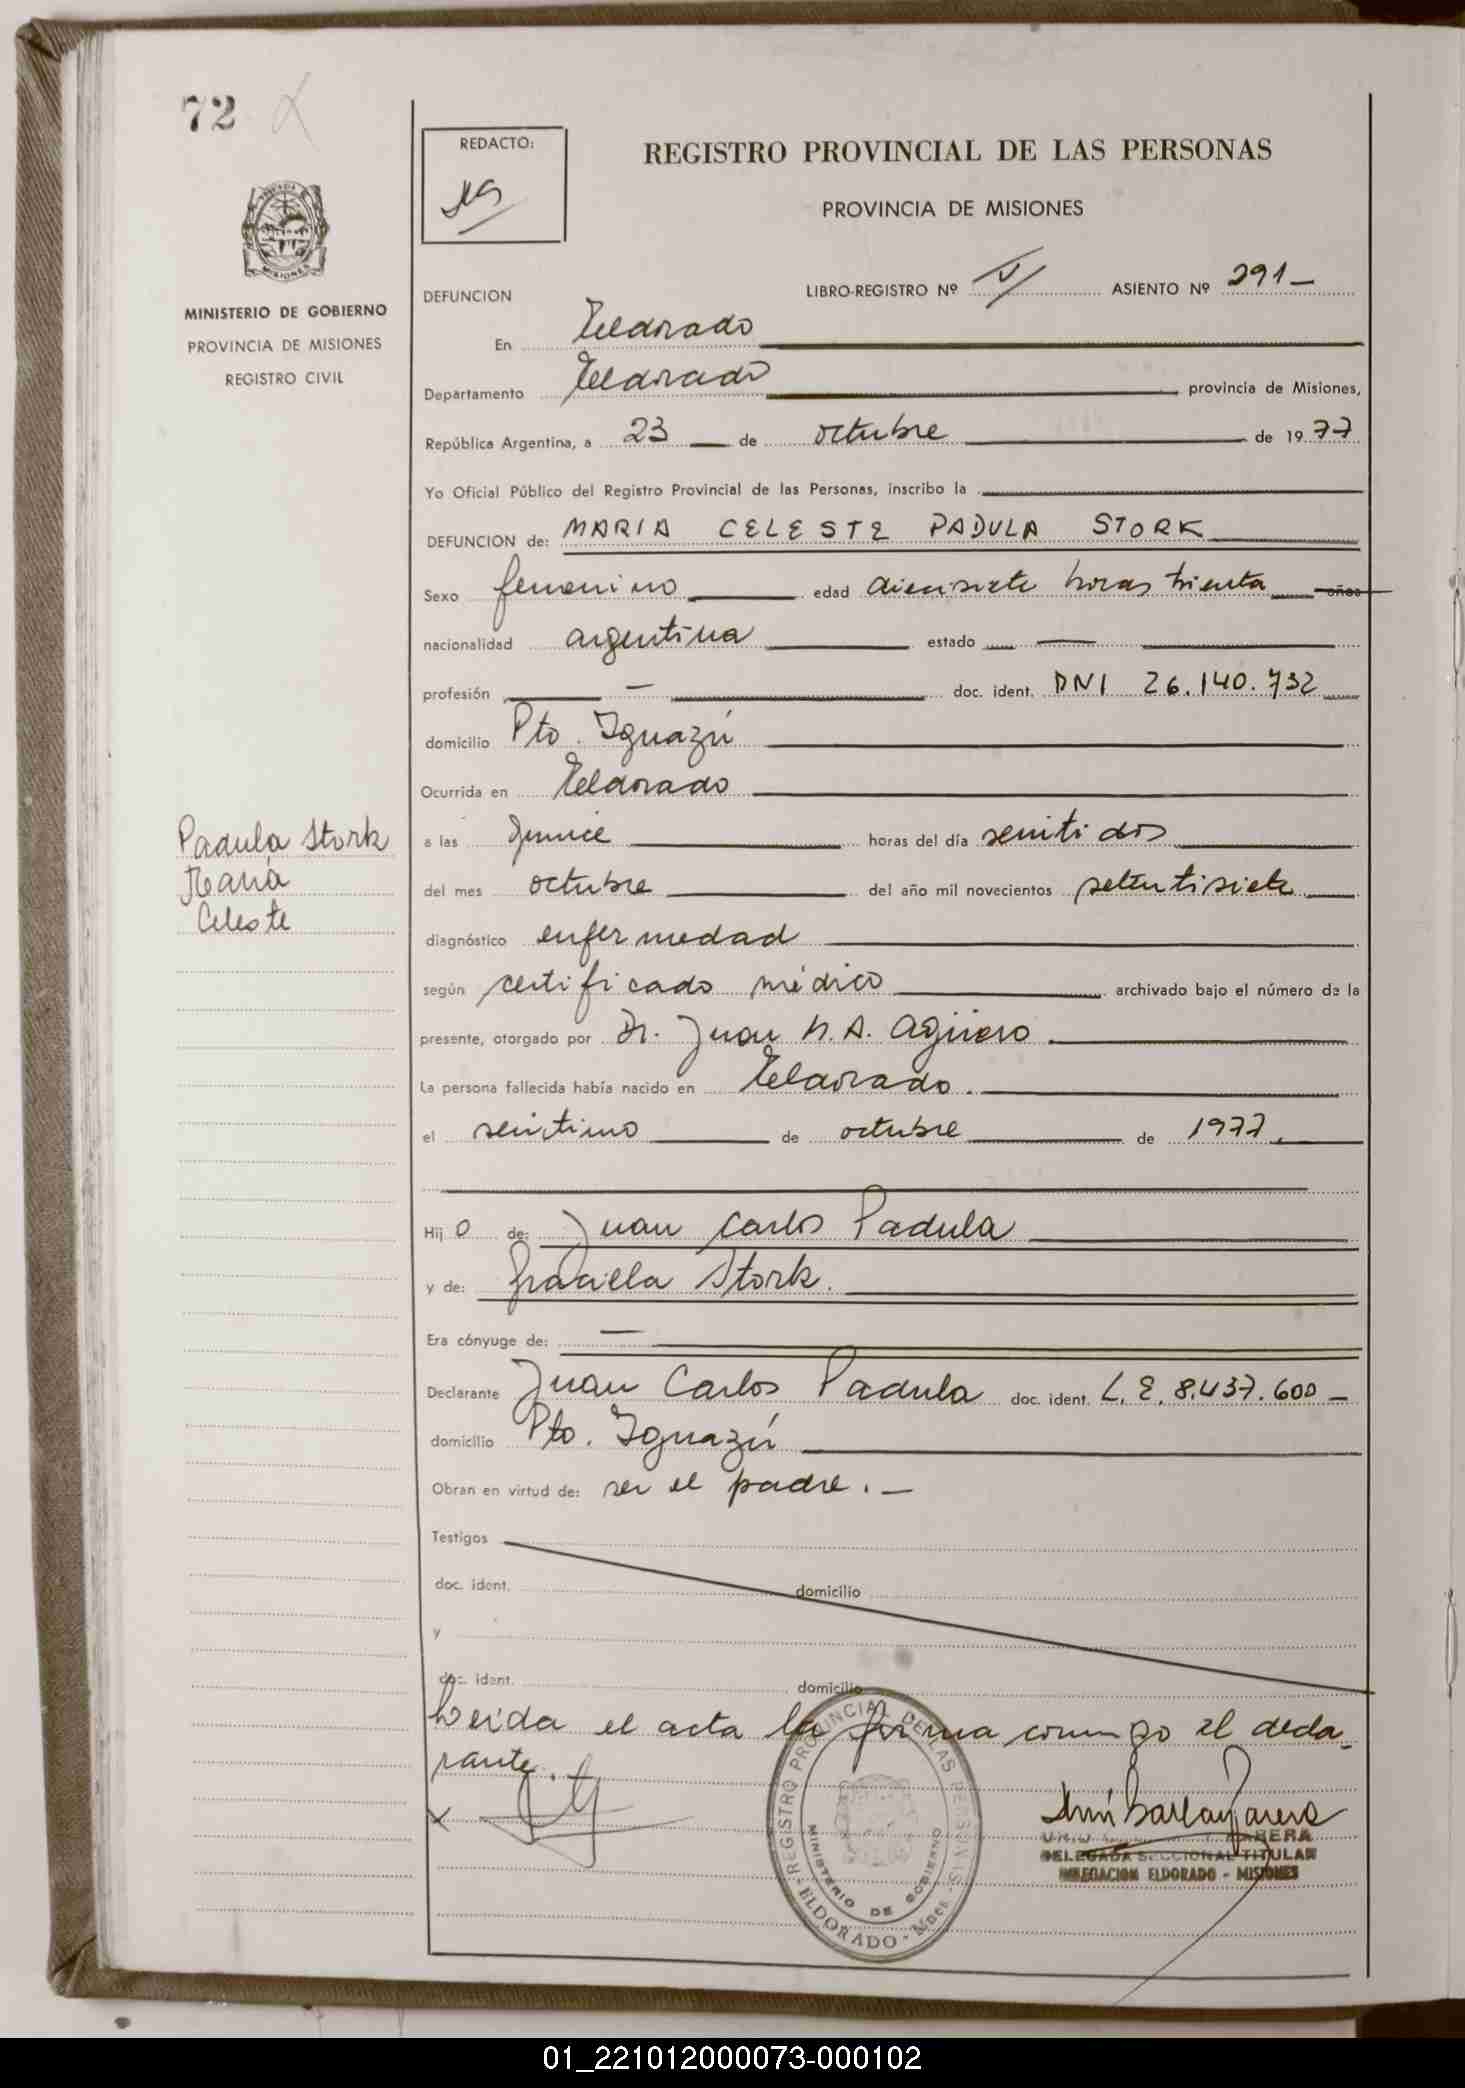 72
REDACTO:
REGISTRO PROVINCIAL DE LAS PERSONAS
PROVINCIA DE MISIONES
MISIONES
MINISTERIO DE GOBIERNO
PROVINCIA DE MISIONES
REGISTRO CIVIL
DEFUNCION
LIBRO-REGISTRO Nº V ASIENTO Nº 291
En Eldorado
Departamento Eldorado provincia de Misiones,
República Argentina, a 23 de octubre de 1977
Yo Oficial Público del Registro Provincial de las Personas, inscribo la
DEFUNCION de: MARIA CELESTE PADULA STORK
Sexo femenino edad diecisiete horas treinta años
nacionalidad argentina estado —
profesión — doc. ident. DNI 26.140.732
domicilio Pto. Iguazú
Ocurrida en Eldorado
Padula Stork
María
Celeste
a las quince horas del día veintidos
del mes octubre del año mil novecientos setentisiete
diagnóstico enfermedad
según certificado médico archivado bajo el número de la
presente, otorgado por Dr. Juan N.A. Agüero
La persona fallecida había nacido en Eldorado.
el veintiuno de octubre de 1977.
Hij o de: Juan Carlos Padula
y de: Graciela Stork.
Era cónyuge de: —
Declarante Juan Carlos Padula doc. ident. L.E. 8.437.600 —
domicilio Pto. Iguazú
Obran en virtud de: ser el padre. —
Testigos
doc. ident. domicilio
y
doc. ident. domicilio
Leida el acta la firma conmigo el decla-
rante.
X
REGISTRO PROVINCIAL DE LAS PERSONAS
MINISTERIO DE GOBIERNO
ELDORADO - Mnes.
DELEGADA SECCIONAL TITULAR
DELEGACION ELDORADO - MISIONES
01_221012000073-000102